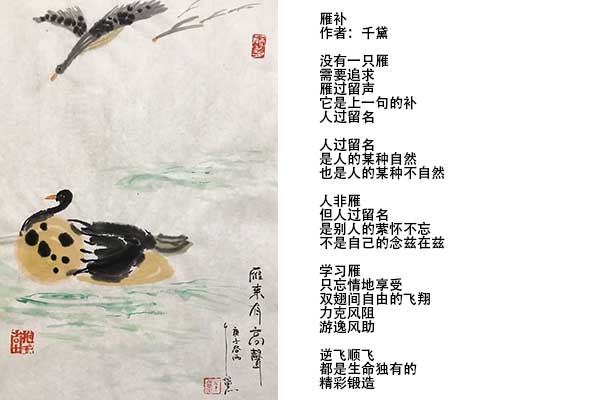 雁补
作者：千黛
没有一只雁
需要追求
雁过留声
它是上一句的补
人过留名
人过留名
是人的某种自然
也是人的某种不自然
人非雁
但人过留名
是别人的萦怀不忘
不是自己的念兹在兹
学习雁
只忘情地享受
双翅间自由的飞翔
力克风阻
游逸风助
逆飞顺飞
都是生命独有的
精彩锻造
雁来有高聲